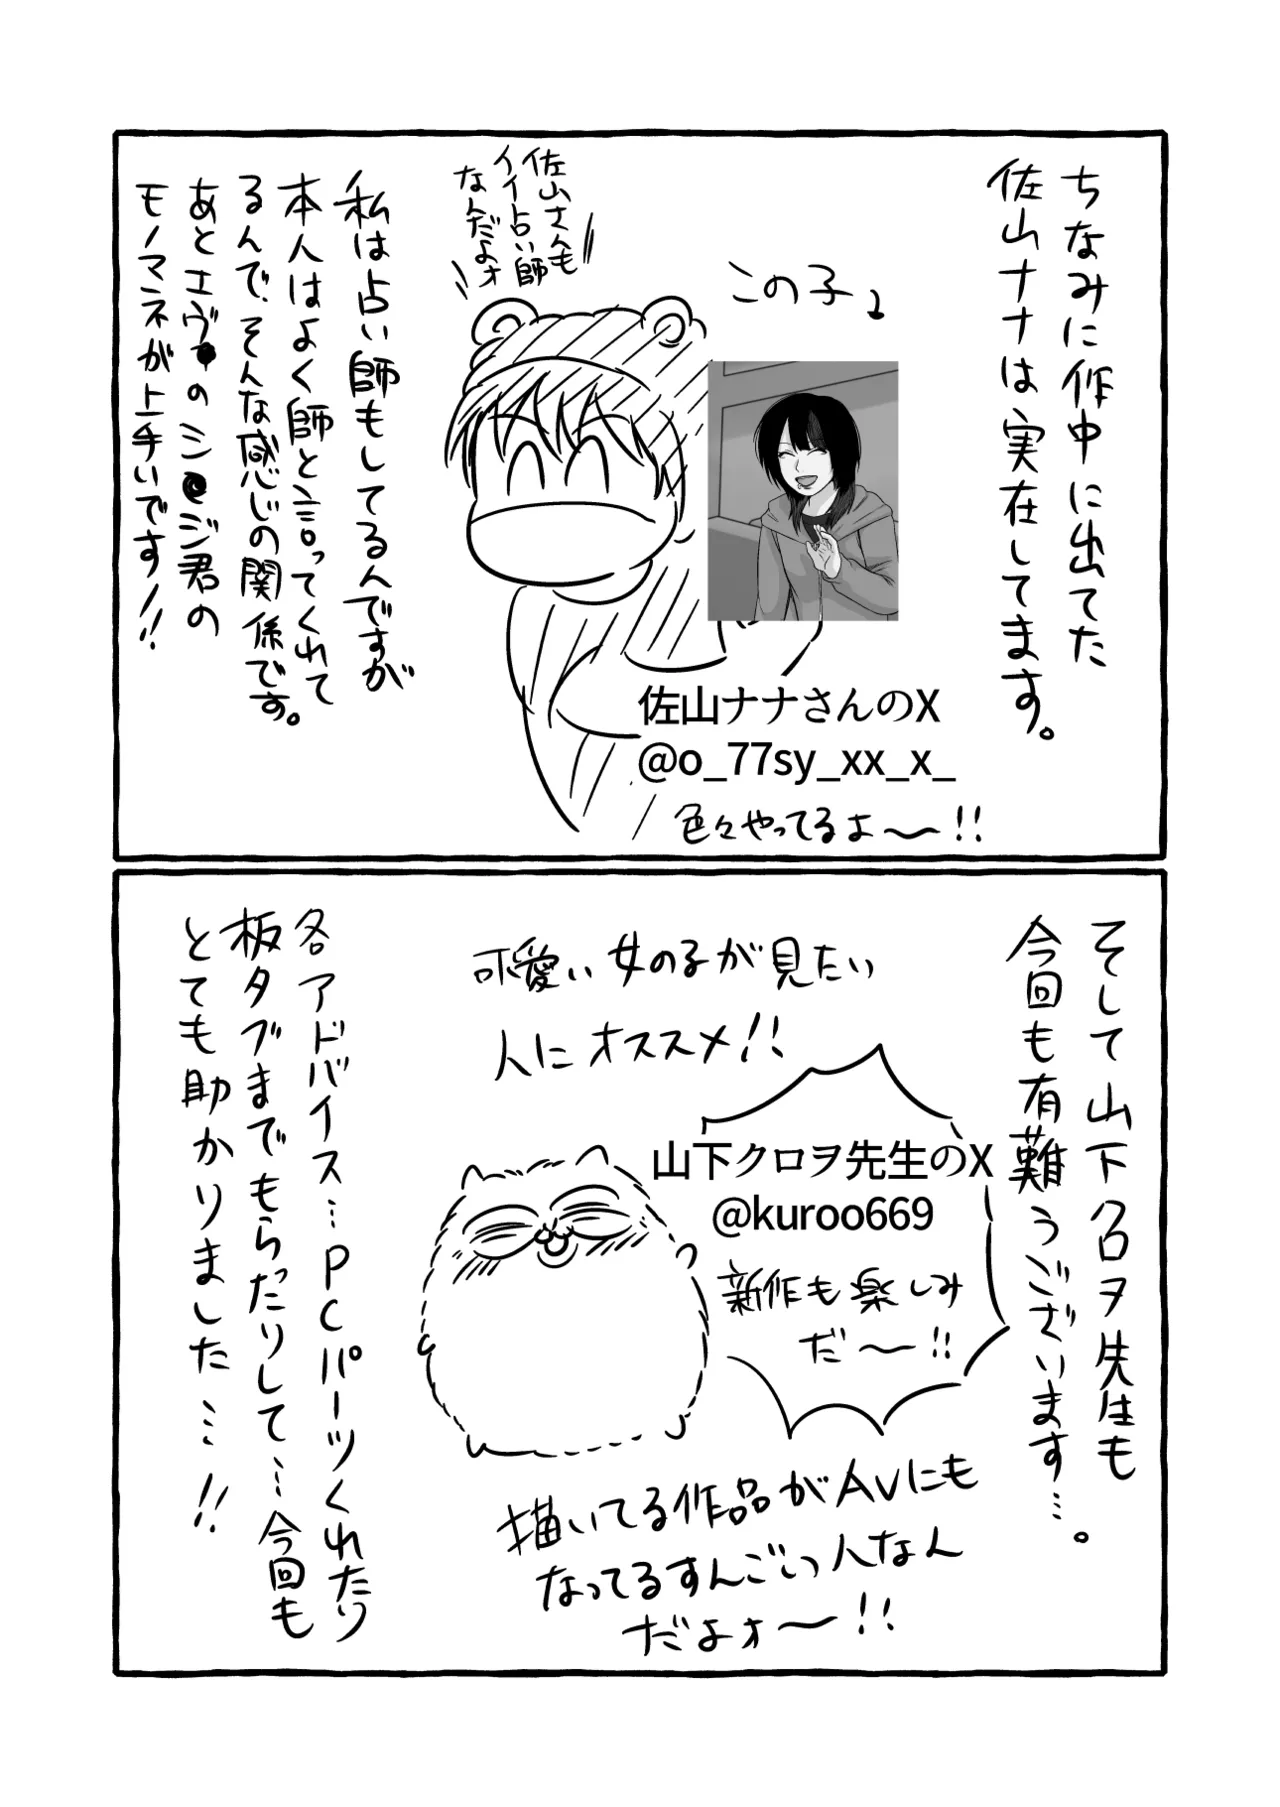 ちなみに作中に出てた
佐山ナナは実在してます。
この子
佐山さんも
イイ占い師
なんだよォ
佐山ナナさんのX
@o_77sy_xx_x_
色々やってるよ〜!!
私は占い師もしてるんですが
本人はよく師と言ってくれて
るんで、そんな感じの関係です。
あとエヴ●のシ●ジ君の
モノマネが上手いです!!
そして山下クロヲ先生も
今回も有難うございます…。
可愛い女の子が見たい
人にオススメ!!
山下クロヲ先生のX
@kuroo669
新作も楽しみ
だ〜!!
描いてる作品がAVにも
なってるすんごいっ人なん
だよォ〜!!
各アドバイス…PCパーツくれたり
板タブまでもらったりして…今回も
とても助かりました…!!